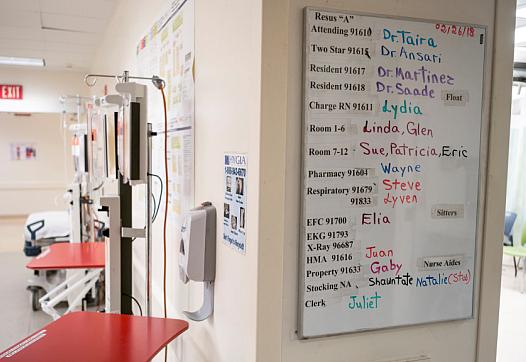 EXIT
HYGIA
Resus "A"
02/26/18
Attending 91610 Dr. Taira
Two Star 91615 Dr. Ansari
Resident 91617 Dr. Martinez
Resident 91618 Dr. Saade
Float
Charge RN 91611 Lydia
Room 1-6 Linda, Glen
Room 7-12 Sue, Patricia, Eric
Pharmacy 91604 Wayne
Respiratory 91679 Steve
91833 Lyven
Sitters
EFC 91700 Elia
EKG 91793
X-Ray 96687
HMA 91616 Juan
Nurse Aides
Property 91633 Gaby
Stocking NA Shauntate Natalie (Stud)
Clerk Juliet